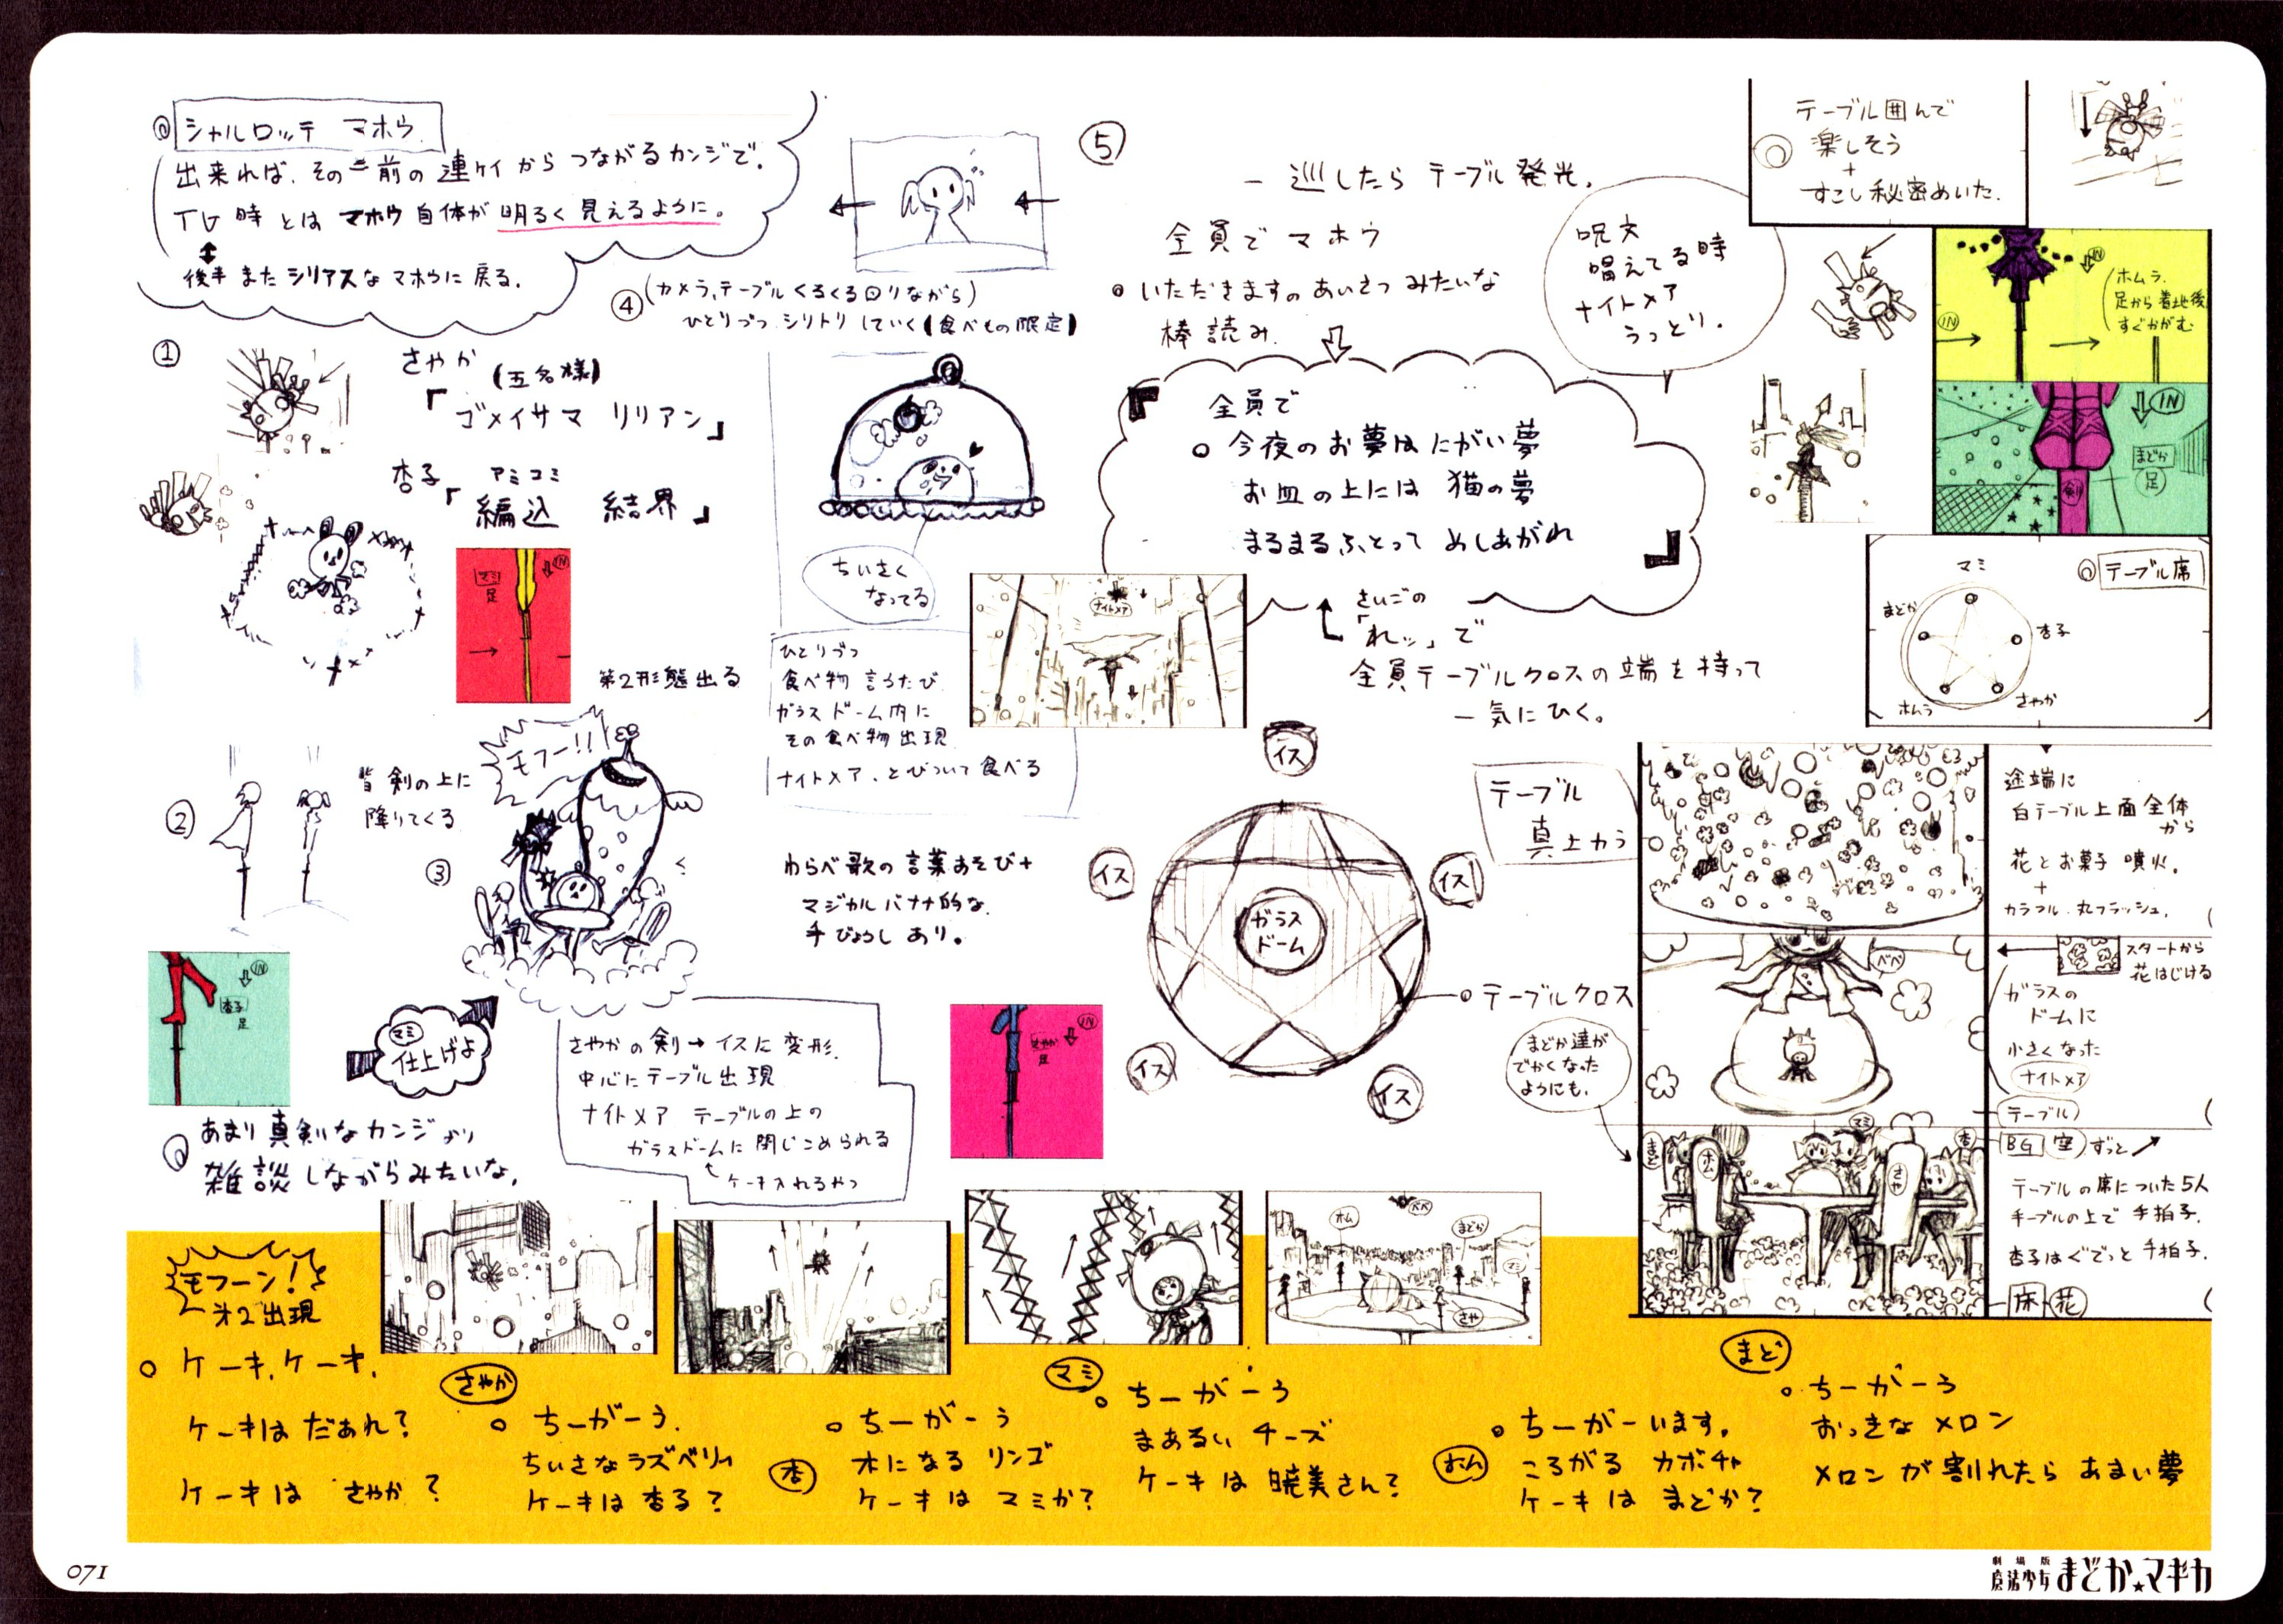 シャルロッテ マホウ
出来れば、その前の連ケイからつながるカンジで。
TV時とはマホウ自体が明るく見えるように。
後半またシリアスなマホウに戻る。
①
さやか (五名様)
「ゴメイサマ リリアン」
杏子「編込 結界」
アミコミ
マミ
足
IN
第2形態出る
②
皆剣の上に
降りてくる
③
モフー!!
杏子
足
IN
マミ
仕上げよ
あまり真剣なカンジより
雑談しながらみたいな。
さやかの剣→イスに変形。
中心にテーブル出現
ナイトメア テーブルの上の
ガラスドームに閉じこめられる
ケーキ入れるやつ
④
(カメラ、テーブルくるくる回りながら)
ひとりづつシリトリしていく(食べもの限定)
ちいさく
なってる
ひとりづつ
食べ物言うたび
ガラスドーム内に
その食べ物出現
ナイトメア、とびついて食べる
わらべ歌の言葉あそび+
マジカルバナナ的な
手びょうしあり。
さやか
足
IN
⑤
一巡したらテーブル発光。
全員でマホウ
いただきますのあいさつみたいな
棒読み。
呪文
唱えてる時
ナイトメア
うっとり。
『全員で
今夜のお夢はにがい夢
お皿の上には猫の夢
まるまるふとってめしあがれ』
さいごの
「れッ」で
全員テーブルクロスの端を持って
一気にひく。
ナイトメア
テーブル
真上から
イス
イス
イス
イス
イス
ガラス
ドーム
テーブルクロス
まどか達が
でかくなった
ようにも。
テーブル囲んで
楽しそう
+
すこし秘密めいた。
IN
ホムラ
足から着地後
すぐかがむ
IN
IN
まどか
足
剣
テーブル席
マミ
まどか
杏子
ホムラ
さやか
途端に
白テーブル上面全体
から
花とお菓子噴火。
+
カラフル丸フラッシュ。
スタートから
花はじける
べべ
ガラスの
ドームに
小さくなった
ナイトメア
テーブル
BG 空 ずっと
テーブルの席についた5人
テーブルの上で手拍子。
杏子はぐでっと手拍子。
床 花
まど
ホム
マミ
さや
杏
ホム
べべ
まどか
マミ
さや
モフーン!
才2出現
ケーキ、ケーキ、
ケーキはだあれ?
ケーキは さやか?
さやか
ちーがーう。
ちいさなラズベリィ
ケーキは杏子?
杏
ちーがーう
木になるリンゴ
ケーキは マミか?
マミ
ちーがーう
まあるいチーズ
ケーキは暁美さん?
ほむ
ちーがーいます。
ころがる カボチャ
ケーキは まどか?
まど
ちーがーう
おっきなメロン
メロンが割れたらあまい夢
071
劇場版
魔法少女まどか★マギカ